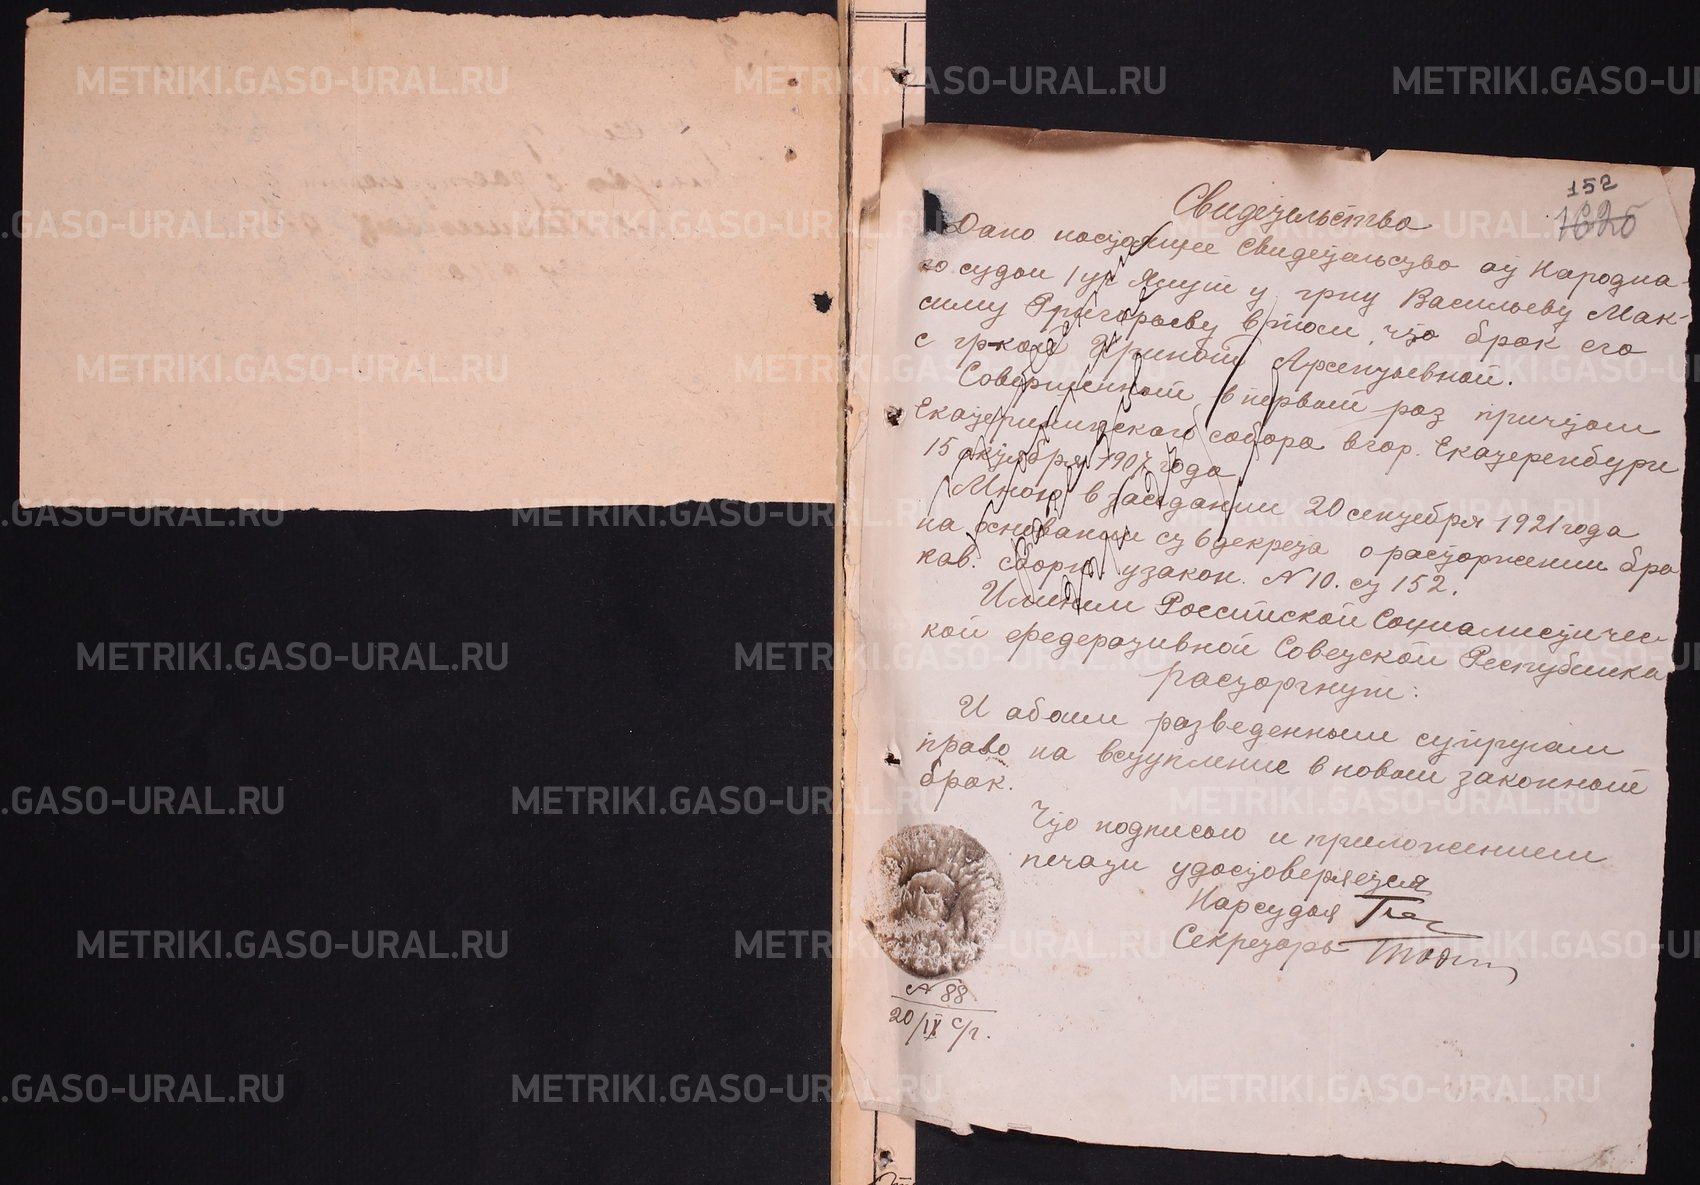 152
1626
Свидетельство
Дано настоящее Свидетельство от Народна-
го судьи 1 уч гр-ну Васильеву Мак-
симу Григорьеву в том, что брак его
с гр-кой Ириной Арсентьевной.
Совершенной в первой раз причтом
Екатерининского собора в гор. Екатеренбурге
15 октября 1907 года
Мною в заседании 20 сентября 1921 года
на основании ст 6 декрета о расторжении бра
ков. сборн. узакон. N 10. ст 152.
Именем Российской Социалистичес-
кой федеративной Советской Республики
расторгнут.
И абоим разведенным супругам
право на вступление в новой законной
брак.
Что подписью и приложением
печати удостоверяется
Нарсудья
Секретарь
N 88
20/IX с/г.
METRIKI.GASO-URAL.RU